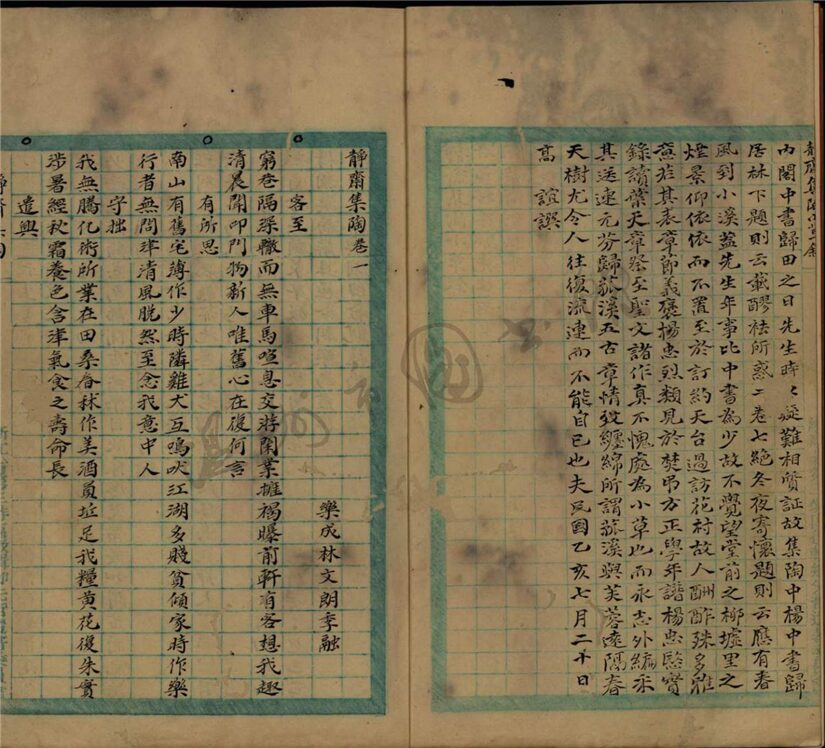 內閣中書歸田之日先生時々疑難相質証故集陶中楊中書歸
居林下題則云載醪祛所惑二卷七絕冬夜寄懷題則云應有春
風到小溪蓋先生年事比中書為少故不覺望堂前之柳墟里之
煙景仰依依而不置至於訂約天台過訪花村故人酬酢殊多雅
意若其表章節義褒揚忠烈類見於焚吊方正學年譜楊忠愍實
錄讀葉天章祭至聖文諸作真不愧處為小草也而永志外編采
其送連元芬歸菰溪五古章情致纏綿所謂菰溪與芙蓉遠隔春
天樹尤令人往復流連而不能自已也夫民國乙亥七月二十日
高誼譔
靜齋集陶卷一
樂成林文朗季融
客至
窮巷隔深轍而無車馬喧息交游閑業擁褐曝前軒有客想我趣
清晨聞叩門物新人唯舊心在復何言
有所思
南山有舊宅薄作少時鄰雞犬互鳴吠江湖多賤貧傾家時作樂
行者無問津清風脫然至念我意中人
守拙
我無騰化術所業在田桑舂秫作美酒員址足我糧黃花復朱實
涉暑經秋霜養色含津氣食之壽命長
遣興